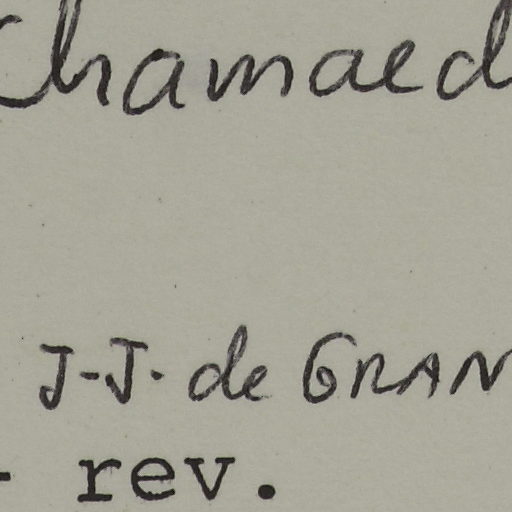 Chamaed
J-J. de GRAN
- rev.